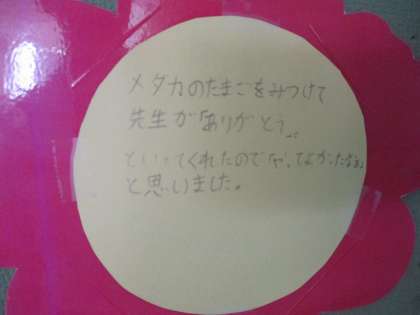 メダカのたまごをみつけて
先生が「ありがとう。」
といってくれたのでやってよかったなぁ。
と思いました。